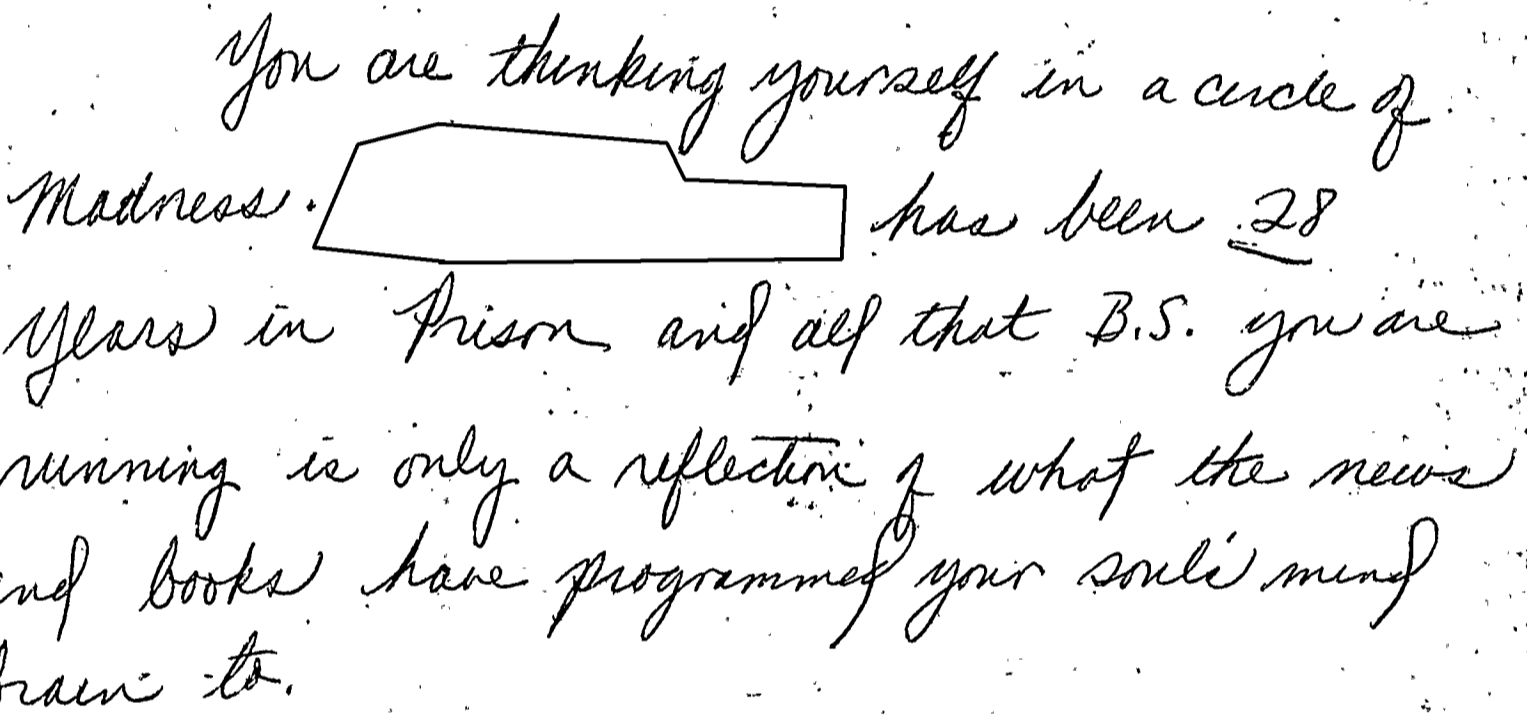 You are thinking yourself in a circle of
Madness. has been 28
years in Prison and all that B.S. you are
running is only a reflection of what the news
and books have programmed your soul's mind
brain to.